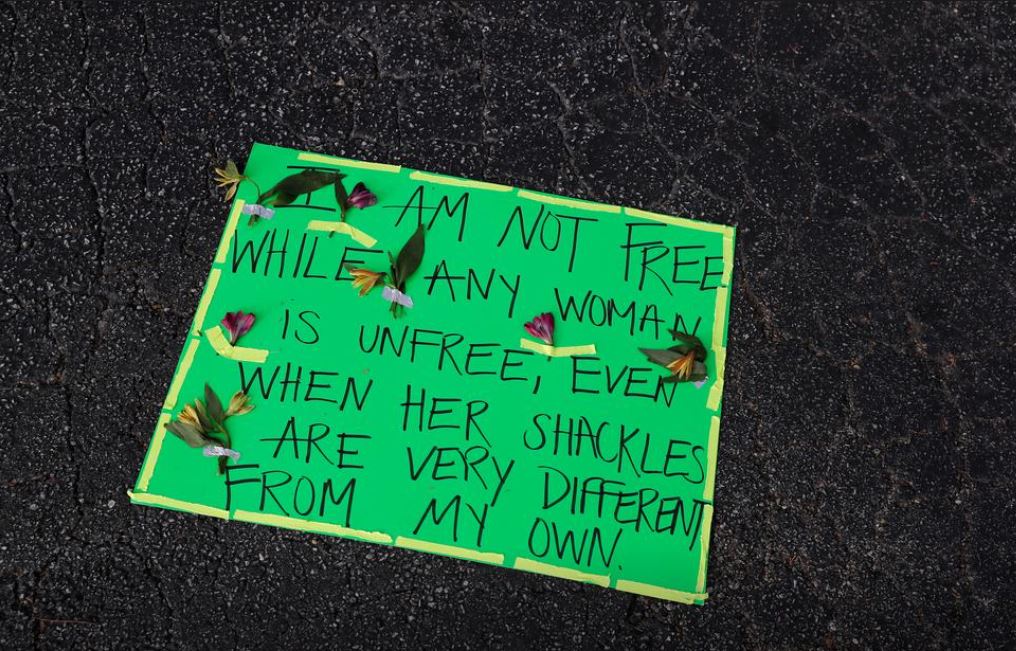 I AM NOT FREE
WHILE ANY WOMAN
IS UNFREE, EVEN
WHEN HER SHACKLES
ARE VERY DIFFERENT
FROM MY OWN.